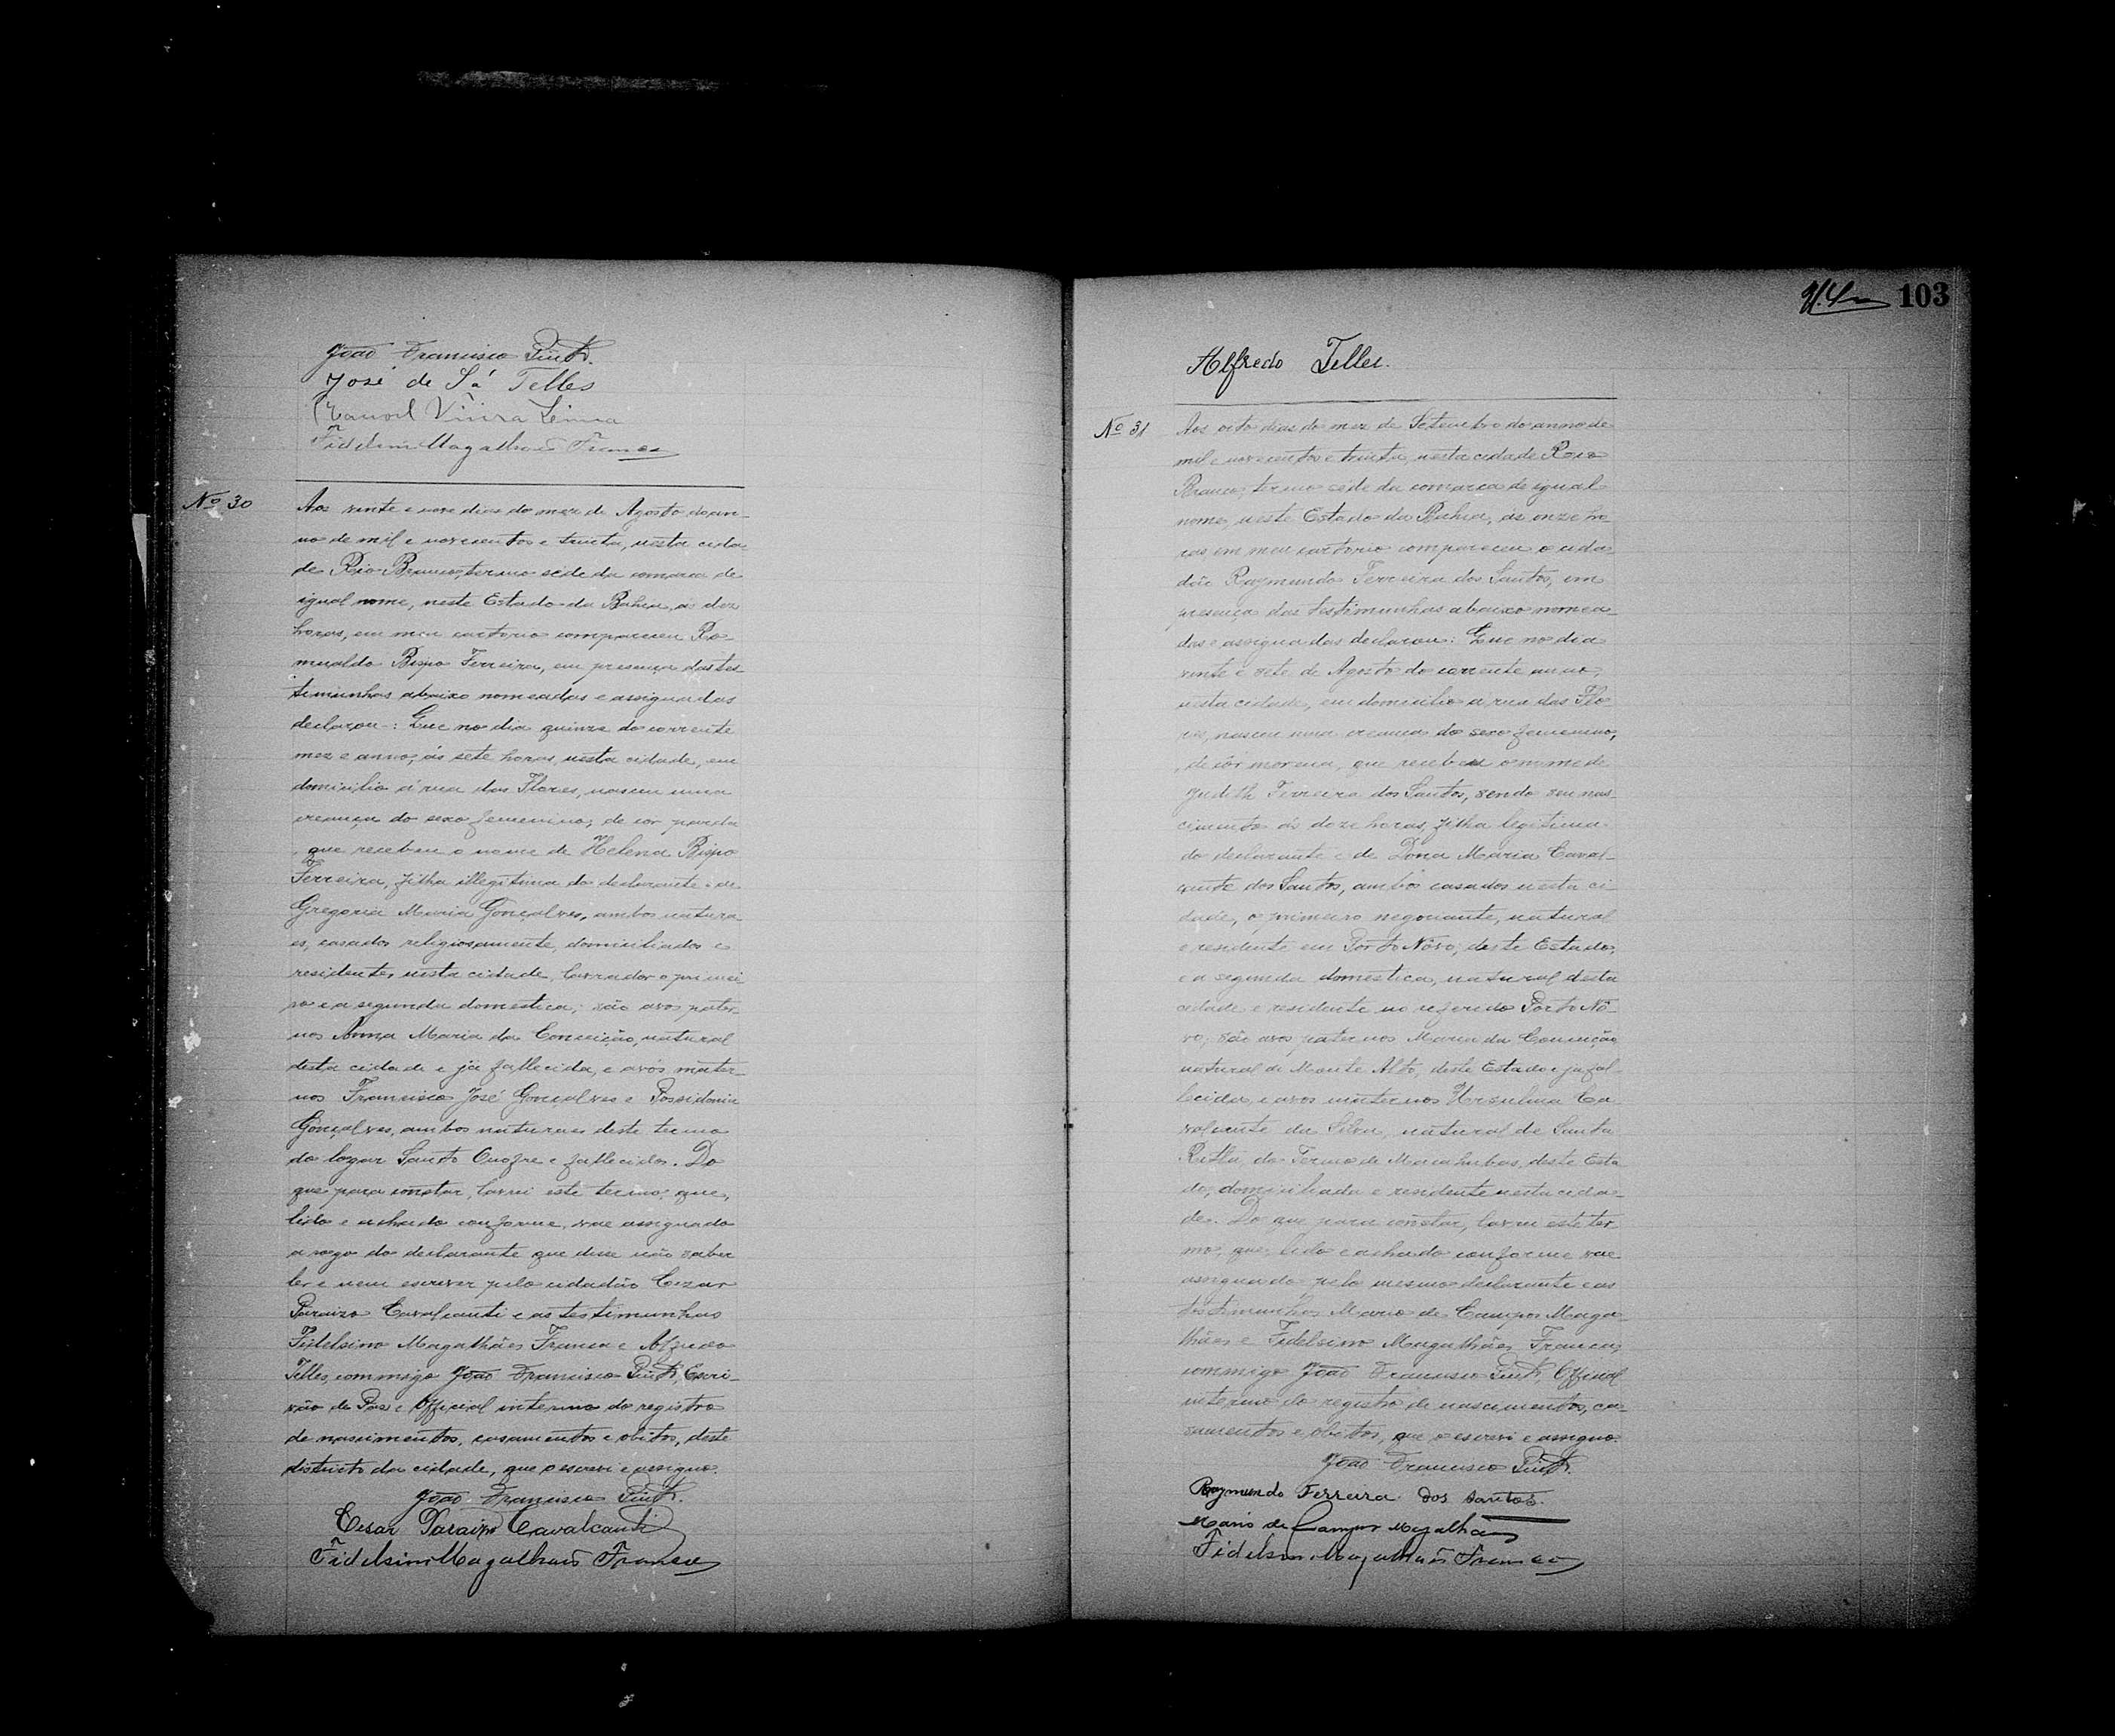 João Francisco Pinto.
José de Sá Telles
Manoel Vieira Lima
Fidelsino Magalhães Franca
Nº 30
Aos vinte e nove dias do mez de Agosto do an-
no de mil e novecentos e trinta, nesta cida
de Rio Branco, termo séde da comarca de
igual nome, neste Estado da Bahia, ás dez
horas, em meu cartorio compareceu Ro-
mualdo Bispo Ferreira, em presença das tes
timunhas abaixo nomeadas e assignadas
declarou: Que no dia quinze do corrente
mez e anno, ás sete horas, nesta cidade, em
domicilio á rua das Flores, nasceu uma
creança do sexo femenino, de cor parda
, que recebeu o nome de Helena Bispo
Ferreira, filha illegitima do declarante e de
Gregoria Maria Gonçalves, ambos natura
es, casados religiosamente, domiciliados e
residentes nesta cidade, lavrador o primei
ro e a segunda domestica; são avos pater
nos Anna Maria da Conceição, natural
desta cidade e já fallecida, e avós mater-
nos Francisco José Gonçalves e Possidonia
Gonçalves, ambos naturaes deste termo
do logar Santo Onofre e fallecidos. Do
que para constar, lavrei este termo, que,
lido e achado conforme, vae assignado
a rogo do declarante que disse não saber
ler e nem escrever pelo cidadão Cezar
Paraizo Cavalcanti e as testimunhas
Fidelsino Magalhães Franca e Alfredo
Telles, commigo João Francisco Pinto, Escri-
vão de Paz e Official interino do registro
de nascimentos, casamentos e obitos, deste
districto da cidade, que o escrevi e assigno.
João Francisco Pinto.
Cesar Paraizo Cavalcanti
Fidelsino Magalhães Franca
103
Alfredo Telles.
Nº 31
Aos oito dias do mez de Setembro do anno de
mil e novecentos e trinta, nesta cidade Rio
Branco, termo séde da comarca de egual
nome, neste Estado da Bahia, ás onze ho
ras em meu cartorio compareceu o cida
dão Raymundo Ferreira dos Santos, em
presença das testimunhas abaixo nomea-
das e assignadas declarou: Que no dia
vinte e sete de Agosto do corrente anno,
nesta cidade, em domicilio á rua das Flo
res, nasceu uma creança do sexo femenino,
, de côr morena, que recebeu o nome de
Judith Ferreira dos Santos, sendo seu nas-
cimento ás doze horas, filha legitima
do declarante e de Dona Maria Caval-
cante dos Santos, ambos casados nesta ci
dade, o primeiro negociante, natural
e residente em Porto Nôvo, deste Estado,
e a segunda domestica, natural desta
cidade e residente no referido Porto Nô-
vo; são avos paternos Maria da Conceição
natural de Monte Alto, deste Estado e já fal-
lecida, e avos maternos Herculina Ca
valcante da Silva, natural de Santa
Ritta do Termo de Macahubas, deste Esta
do, domiciliada e residente nesta cida-
de. Do que para constar, lavrei este ter
mo, que, lido e achado conforme vae
assignado pelo mesmo declarante e as
testimunhas Mario de Campos Maga-
lhães e Fidelsino Magalhães Franca,
commigo João Francisco Pinto, Official
interino do registro de nascimentos, ca-
samentos e obitos, que o escrevi e assigno.
João Francisco Pinto.
Raymundo Ferreira dos Santos.
Mario de Campos Magalhães
Fidelsino Magalhães Franca